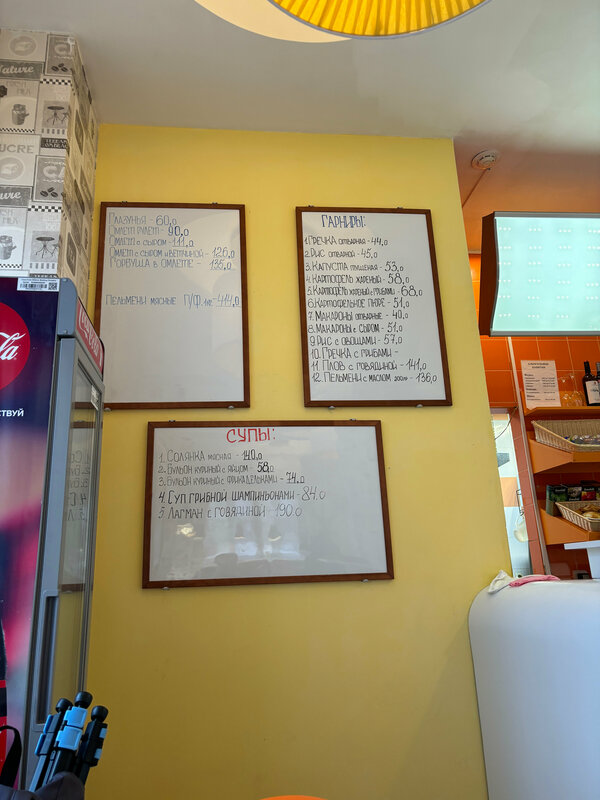 Глазунья - 60,0
Омлет рулет - 90,0
Омлет с сыром - 111,0
Омлет с сыром и ветчиной - 126,0
Горбуша в омлете - 135,0
Пельмени мясные П/Ф 1кг - 444,0
Гарниры:
1. Гречка отварная - 44,0
2. Рис отварной - 45,0
3. Капуста тушеная - 53,0
4. Картофель жареный - 58,0
5. Картофель жареный с грибами - 68,0
6. Картофельное пюре - 51,0
7. Макароны отварные - 40,0
8. Макароны с сыром - 51,0
9. Рис с овощами - 57,0
10. Гречка с грибами -
11. Плов с говядиной - 141,0
12. Пельмени с маслом 200гр - 136,0
Супы:
1. Солянка мясная - 140,0
2. Бульон куриный с яйцом - 58,0
3. Бульон куриный с фрикадельками - 74,0
4. Суп грибной шампиньонами - 84,0
5. Лагман с говядиной - 190,0